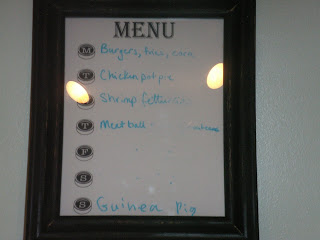 MENU
M Burgers, fries, corn
T Chicken pot pie
Shrimp fettuccine
T Meatball
F
S
S Guinea Pig